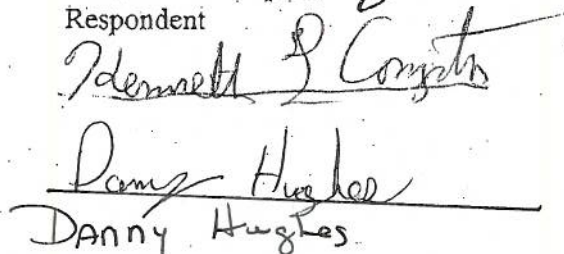 Respondent
Kenneth
Danny Hughes
DAnny Hughes